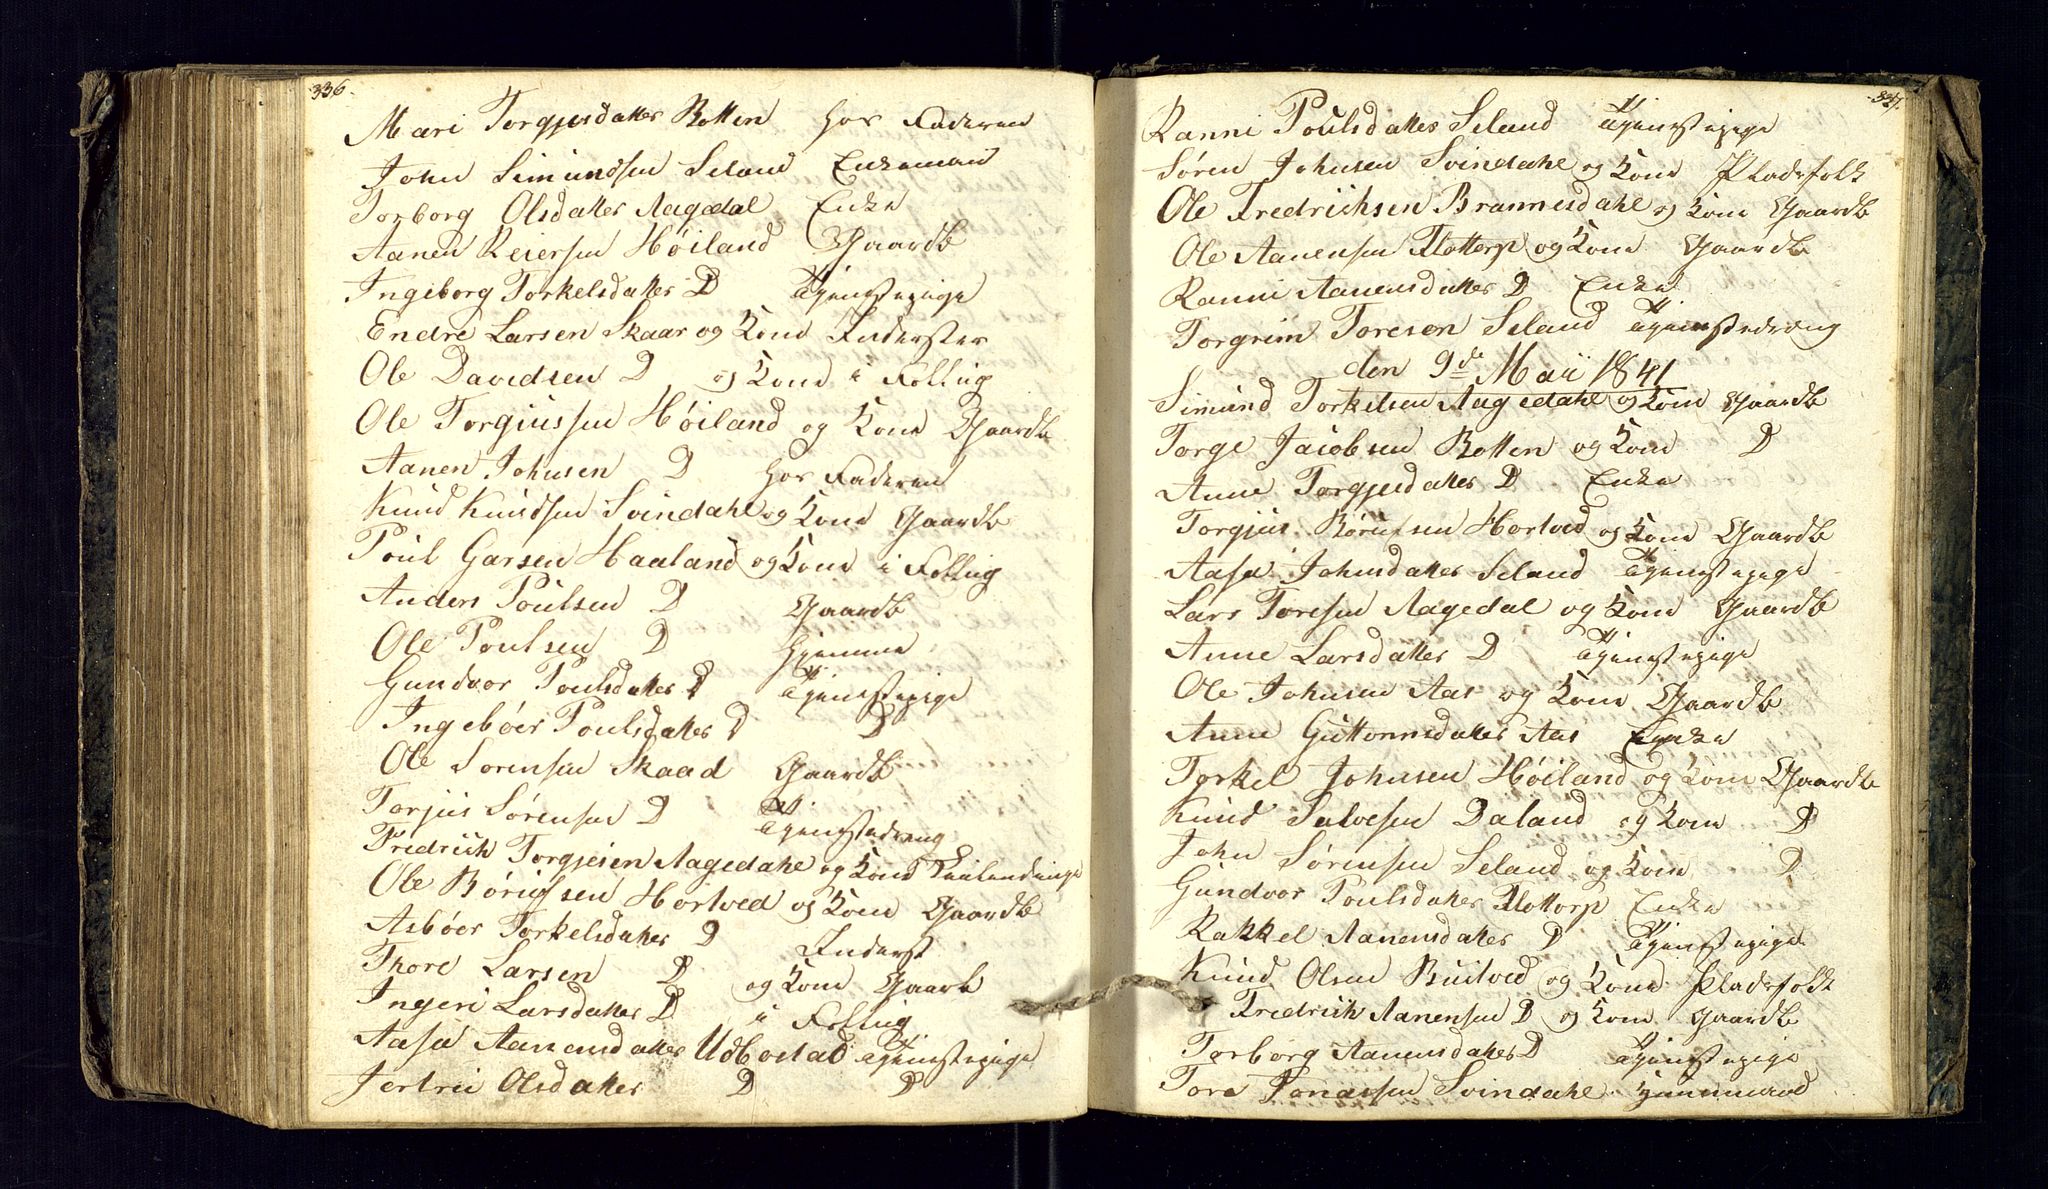 336.
Mari Torgjusdatter Botten hos Faderen
John Simundsen Seland Enkemand
Torborg Olsdatter Aagedal Enke
Aanen Reiersen Høiland Gaardb
Ingeborg Torkelsdatter D Tjenestepige
Endre Larsen Skaar og Kone Inderster
Ole Davidsen D og Kone i Følling
Ole Torgiussen Høiland og Kone Gaardb
Aanen Johnsen D hos Faderen
Knud Knudsen Svindahl og Kone Gaardb
Poul Garsen Haaland og Kone i Følling
Anders Poulsen D Gaardb
Ole Poulsen D hjemme
Gundvor Poulsdatter D Tjenestepige
Ingebøer Poulsdatter D D
Ole Sørensen Skaad Gaardb
Torjus Sørensen D Tjenestedreng
Fredrich Torgjesen Aagedahl og Kone
Ole Børufsen Hortved og Kone Gaardb
Asbøer Torkelsdatter D Inderst
Thore Larsen D og Kone Gaardb
Ingeri Larsdatter D i Følling
Aasa Aanensdatter Udbostad Tjenestepige
Jertru Olsdatter D D
337.
Ranni Poulsdatter Seland Tjenestepige
Søren Johnsen Svindahl og Kone Pladsfolk
Ole Fredrichsen Brannesdahl og Kone Gaardb
Ole Aanensen Flottorp og Kone Gaardb
Ranni Aanensdatter D Enke
Torgrim Toresen Seland Tjenestedreng
den 9de Maii 1841
Simund Torkelsen Aagedahl og Kone Gaardb
Torge Jacobsen Botten og Kone D
Anne Torgjusdatter D Enke
Torgius Børufsen Hortved og Kone Gaardb
Aasa Johnsdatter Seland Tjenestepige
Lars Toresen Aagedal og Kone Gaardb
Anne Larsdatter D Tjenestepige
Ole Johnsen Aas og Kone Gaardb
Anne Guttormsdatter Aas Enke
Torkel Johnsen Høiland og Kone Gaardb
Knud Salvesen Daland og Kone D
John Sørensen Seland og Kone D
Gundvor Poulsdatter Flottorp Enke
Rakkel Aanensdatter D Tjenestepige
Knud Olsen Buitved og Kone Pladsfolk
Fredrich Aanensen D og Kone Gaardb
Torborg Aanensdatter D Tjenestepige
Tore Tonassen Svindahl